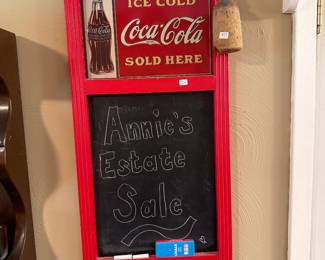 ICE COLD
Coca-Cola
SOLD HERE
Annie's
Estate
Sale